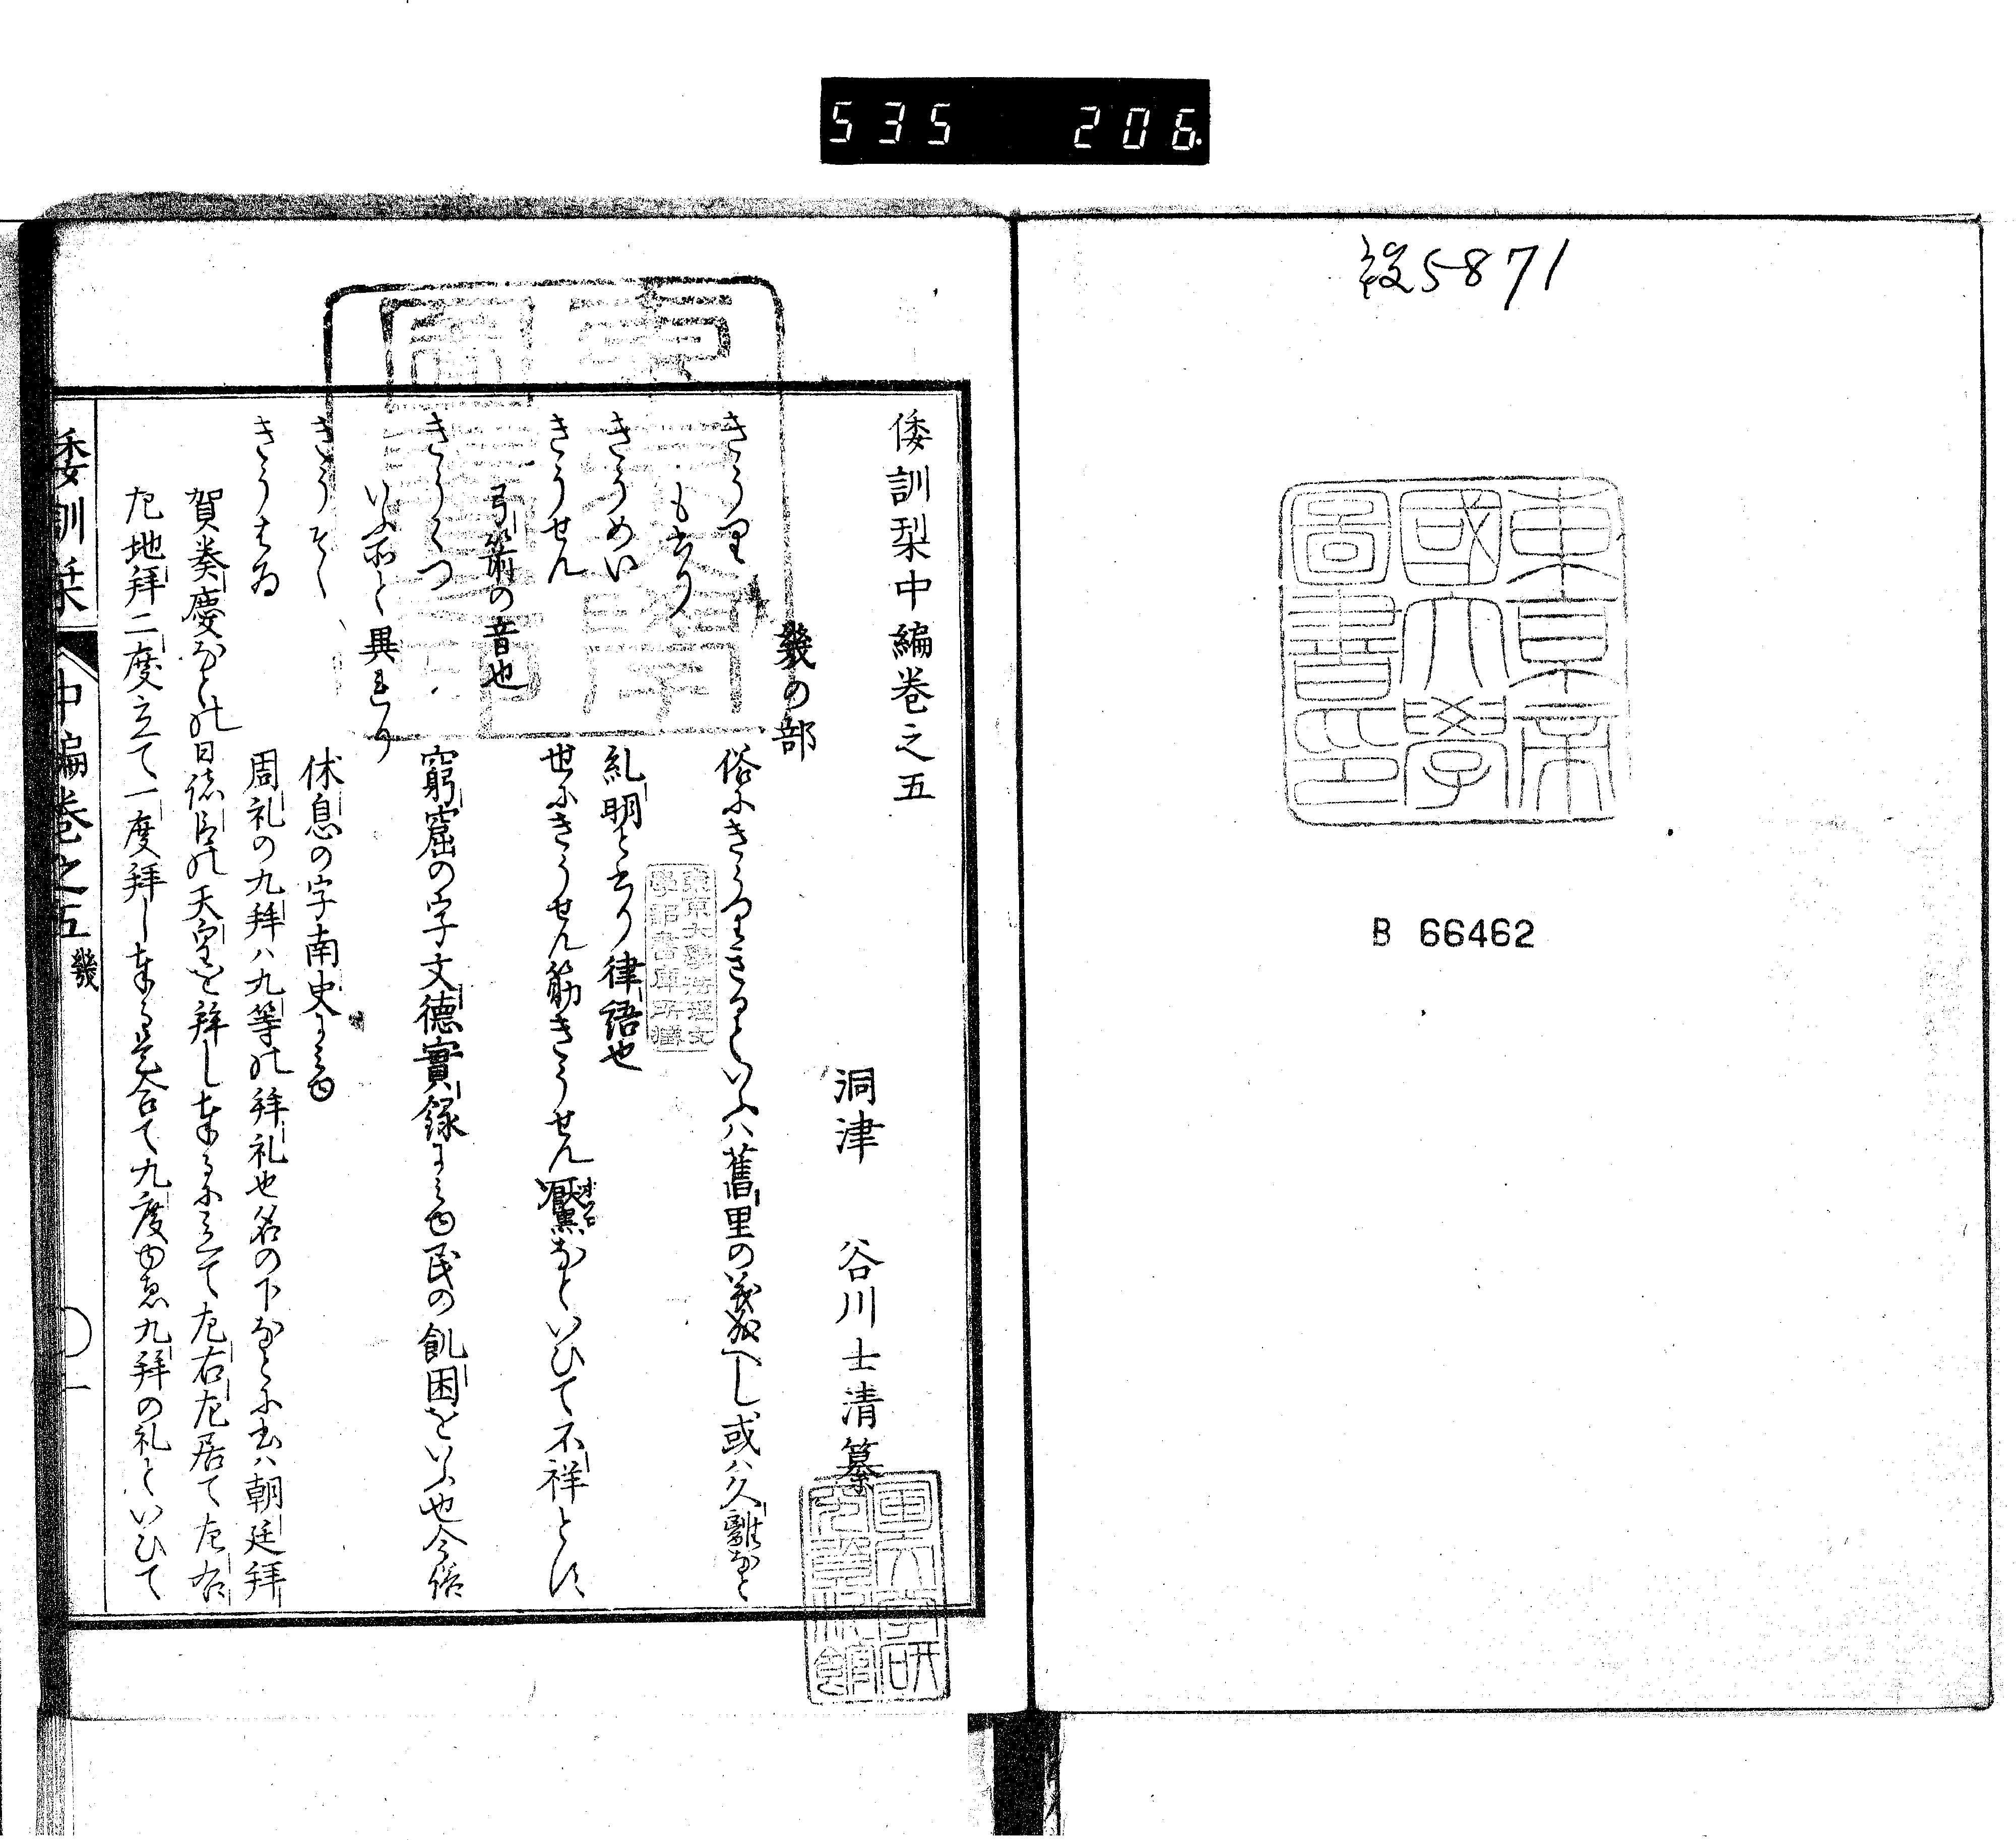 535 206
5871
東京帝
國大學
圖書印
B 66462
倭訓栞中編卷之五
洞津 谷川士清纂
幾の部
きうり 俗にきうりきるといふハ舊里の義成へし或ハ久離なと
も書り
きうめい 糺明と書り律語也
きうせん 世にきうせん筋きうせん厭なといひて不祥とす
弓箭の音也
きうくつ 窮窟の字文德實録にみゆ民の飢困をいふ也今俗
いふ所と異れり
きうそく 休息の字南史にみゆ
きうはゐ 周礼の九拜ハ九等の拜礼也名の下なとに書ハ朝廷拜
賀奏慶なとの日諸臣の天皇を拜し奉るに立て左右左居て左右
左地拜二度立て一度拜し奉る是合て九度ゆゑ九拜の礼といひて
倭訓栞 中編卷之五 幾 一